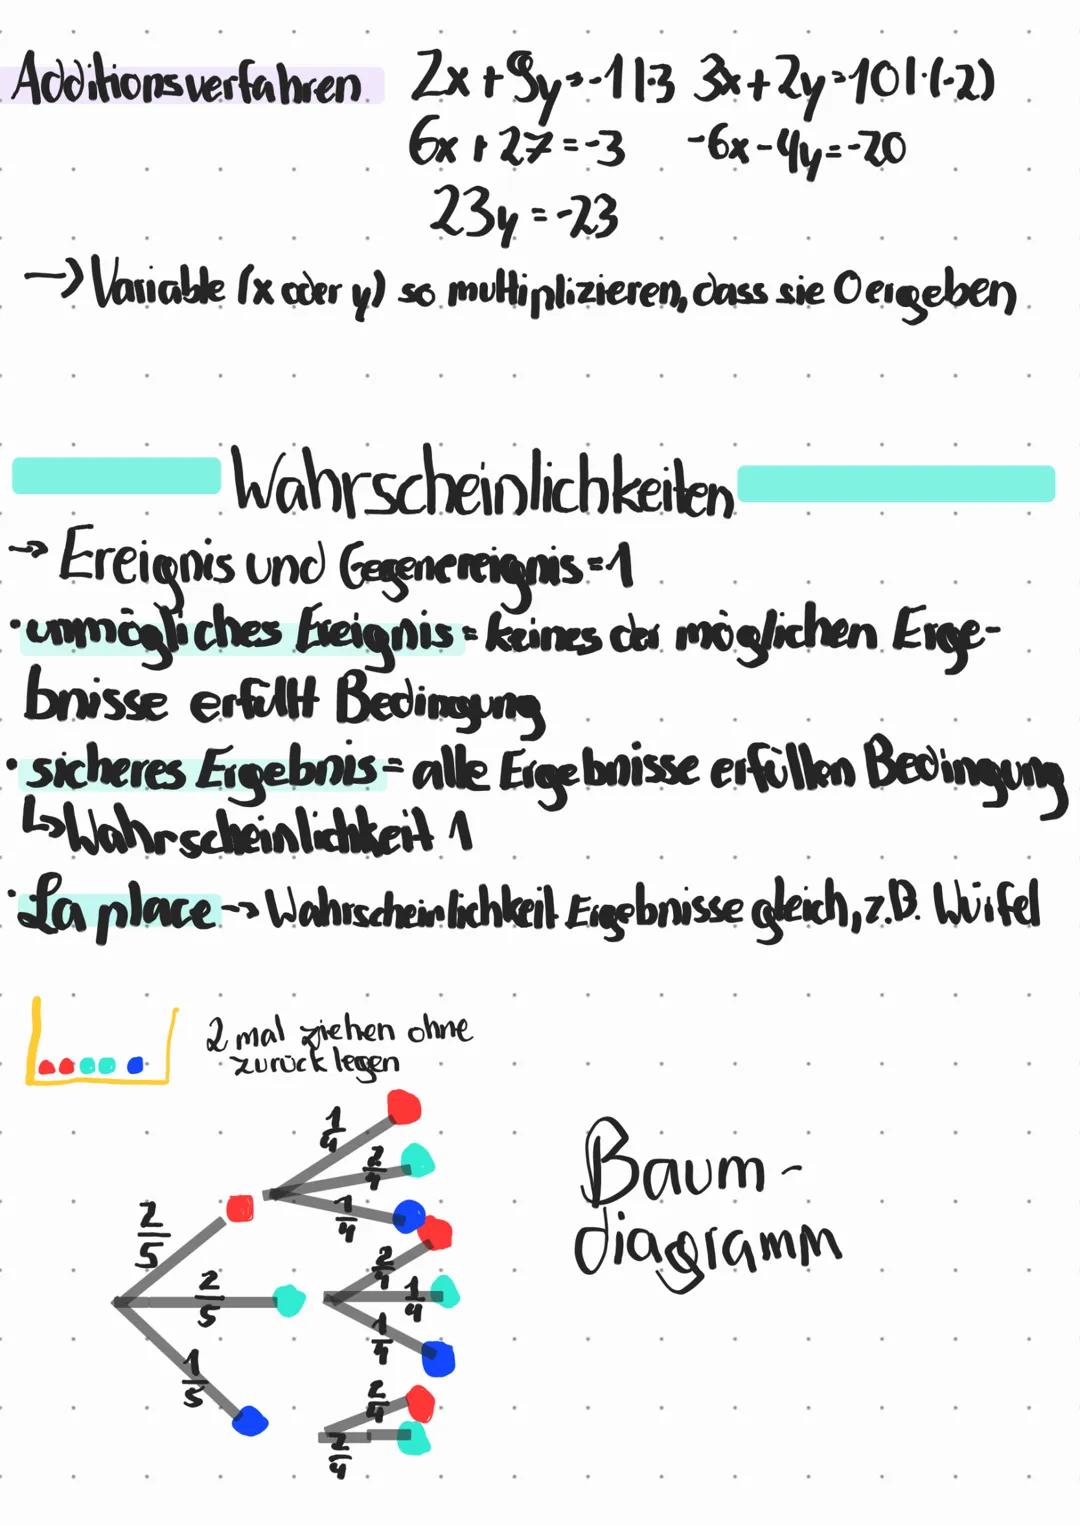 Additionsverfahren 2x+9y=-1|·3 3x+2y=10|·(-2)
6x+27=-3 -6x-4y=-20
23y=-23
→ Variable (x oder y) so multiplizieren, dass sie 0 ergeben
Wahrscheinlichkeiten
→ Ereignis und Gegenereignis=1
·unmögliches Ereignis = keines der möglichen Erge-
bnisse erfüllt Bedingung
·sicheres Ergebnis= alle Ergebnisse erfüllen Bedingung
↳Wahrscheinlichkeit 1
·La place → Wahrscheinlichkeit Ergebnisse gleich, z.B. Würfel
2 mal ziehen ohne
zurück legen
1/4
2/4
1/4
2/5
2/4
2/5
1/4
1/4
1/5
2/4
2/4
Baum-
diagramm